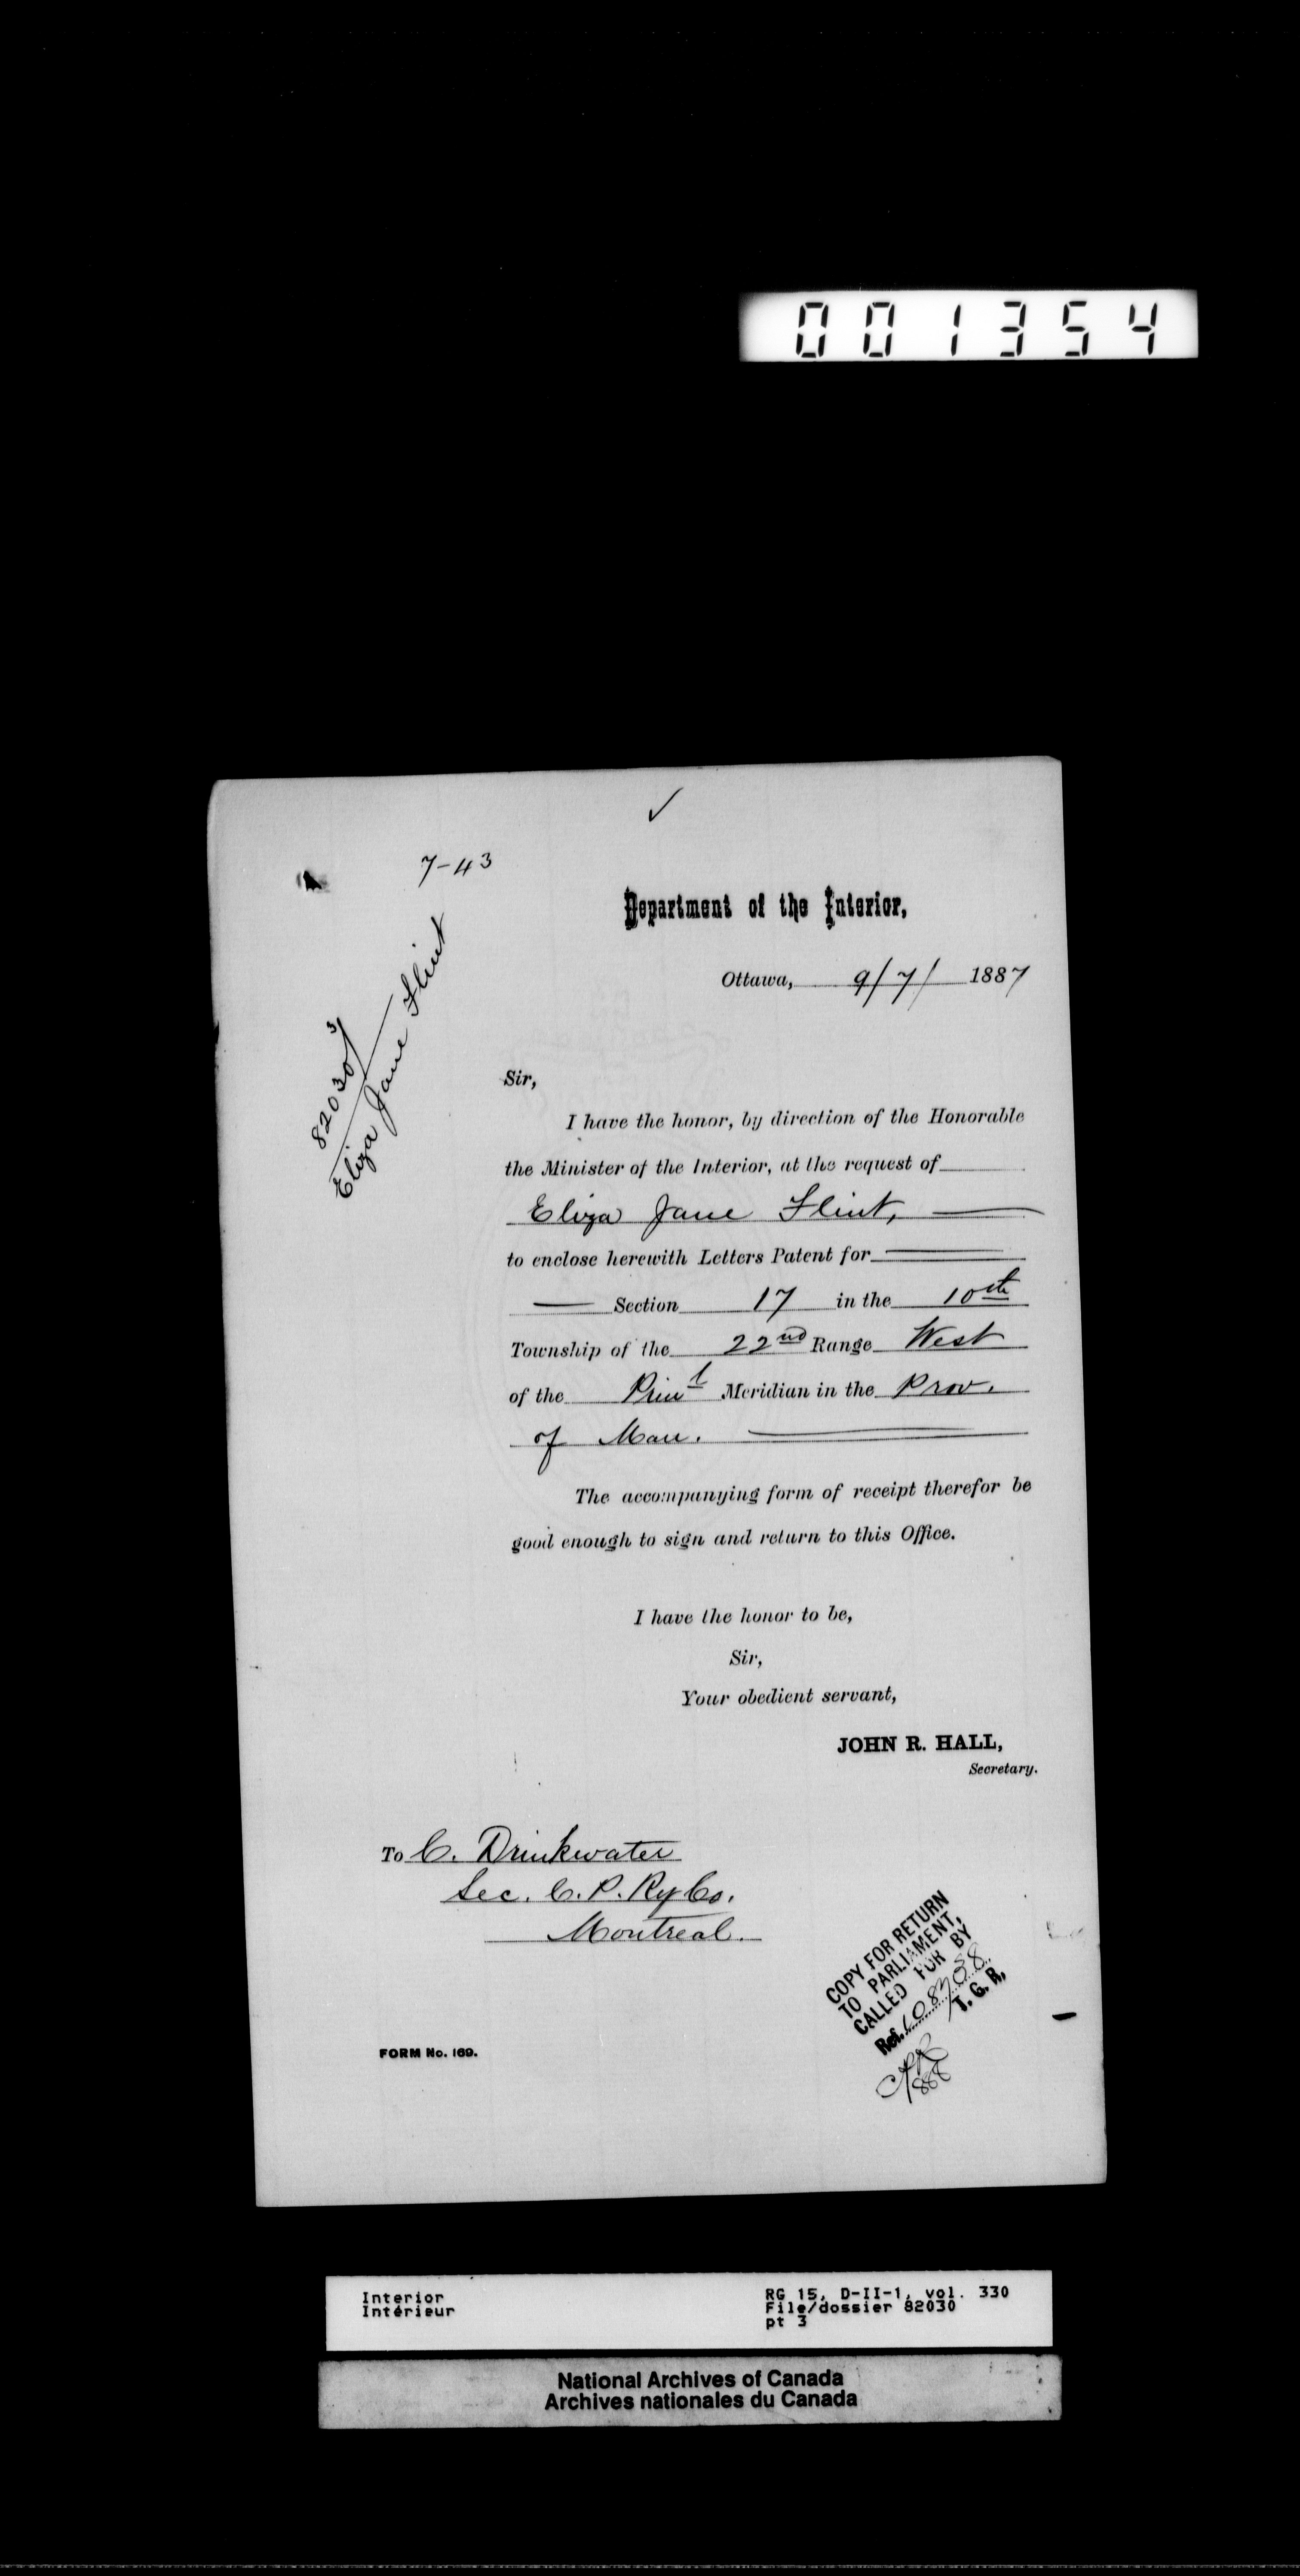 001354
✓
7-43
Department of the Interior,
Ottawa, 9/7/ 1887
82030/3
Eliza Jane Flint
Sir,
I have the honor, by direction of the Honorable
the Minister of the Interior, at the request of
Eliza Jane Flint,
to enclose herewith Letters Patent for
Section 17 in the 10th
Township of the 22nd Range West
of the Prinl Meridian in the Prov.
of Man.
The accompanying form of receipt therefor be
good enough to sign and return to this Office.
I have the honor to be,
Sir,
Your obedient servant,
JOHN R. HALL,
Secretary.
To C. Drinkwater
Sec. C. P. Ry Co.
Montreal.
COPY FOR RETURN
TO PARLIAMENT,
CALLED FOR BY
Ref.
T. G. R.
FORM No. 169.
Interior
Intérieur
RG 15, D-II-1, vol. 330
File/dossier 82030
pt 3
National Archives of Canada
Archives nationales du Canada